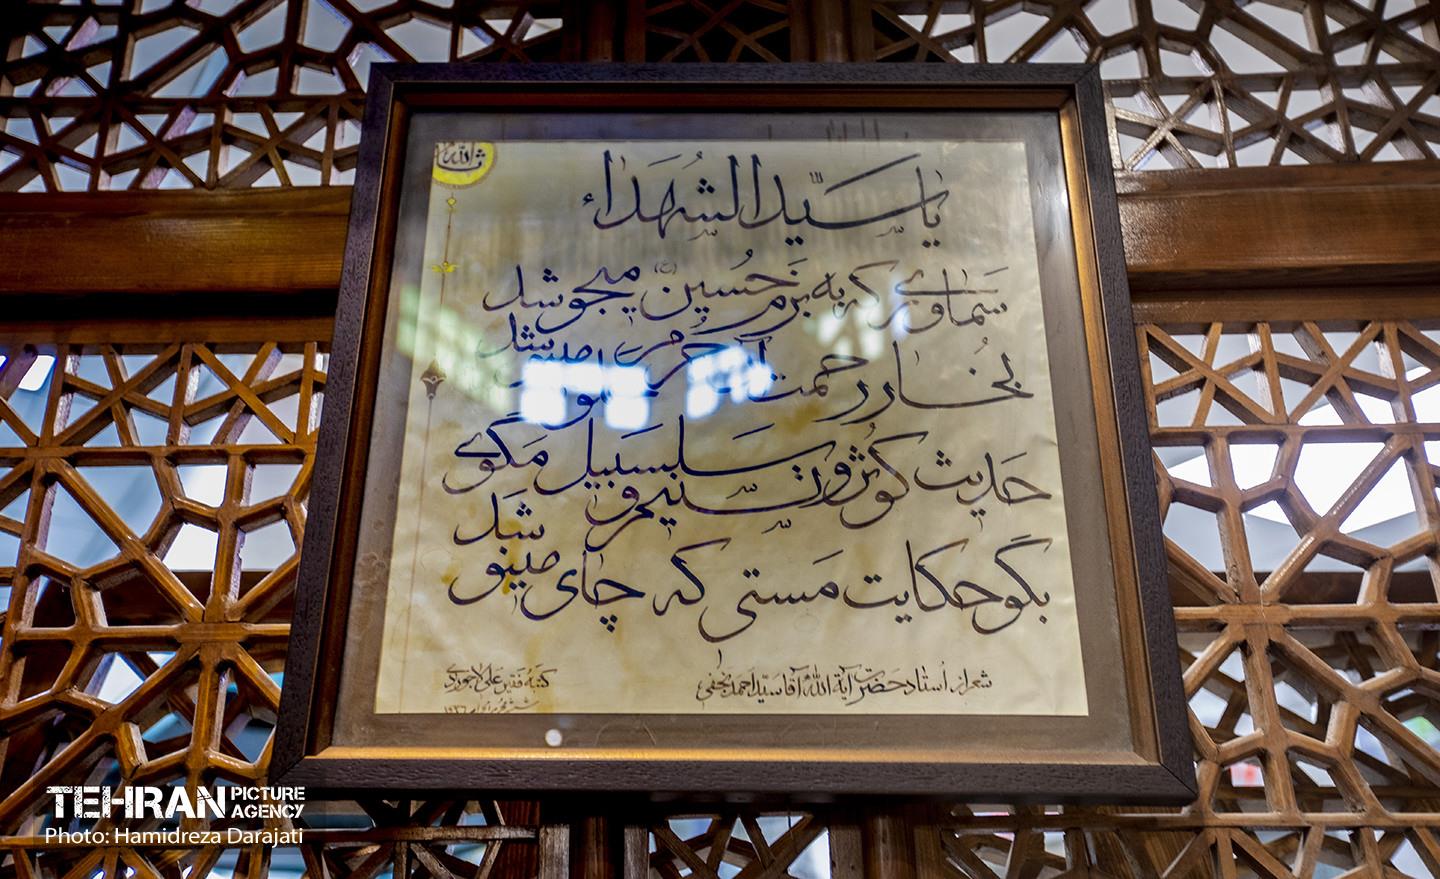 ثارالله
یا سیّدالشهداء
سماوری که به بزم حُسین (ع) میجوشد
بُخار رحمت آن جُرم مینوشد
حدیث کوثر و تسنیم و سلسبیل مگوی
بگو حکایت مستی که چای مینوشد
شعر از اُستاد حضرت آیة الله آقا سیّد احمد نجفی
کتبه فقیر علی لاجوردی
TEHRAN PICTURE AGENCY
Photo: Hamidreza Darajati